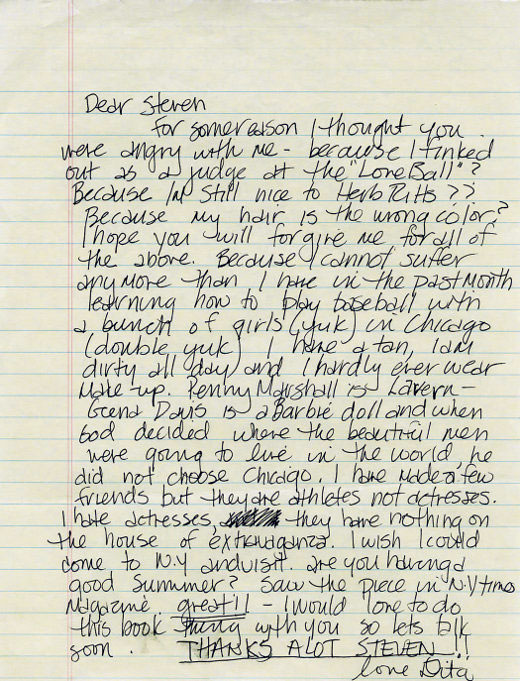 Dear Steven
For some reason I thought you
were angry with me - because I finked
out as a judge at the "Love Ball"?
Because I'm still nice to Herb Ritts??
Because my hair is the wrong color?
I hope you will forgive me for all of
the above. Because I cannot suffer
any more than I have in the past month
learning how to play baseball with
a bunch of girls (yuk) in Chicago
(double yuk) I have a tan, I am
dirty all day and I hardly ever wear
make-up. Penny Marshall is Lavern -
Geena Davis is a Barbie doll and when
God decided where the beautiful men
were going to live in the world, he
did not choose Chicago. I have made a few
friends but they are athletes not actresses.
I hate actresses, they have nothing on
the house of extravaganza. I wish I could
come to N.Y and visit. are you having a
good summer? Saw the piece in N.Y times
Magazine. great!! - I would love to do
this book thing with you so lets talk
soon. THANKS ALOT STEVEN!!
love Dita